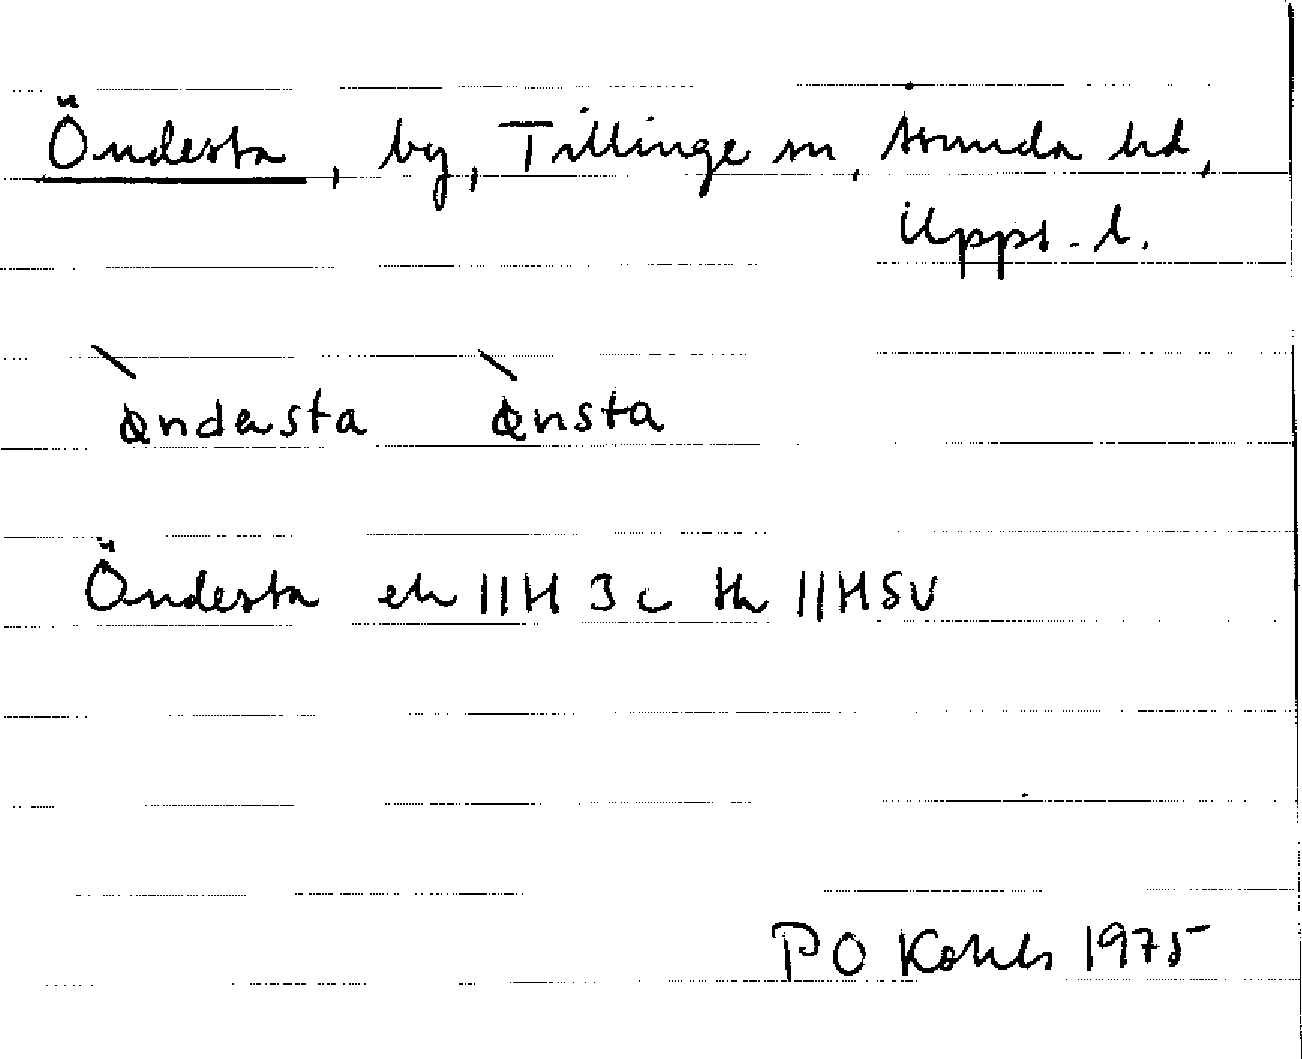 Öndesta, by, Tillinge sn, Åsunda hd,
Upps. l.
ˋøndesta ˋønsta
Öndesta ek 11H 3c tk 11HSV
P O 1975